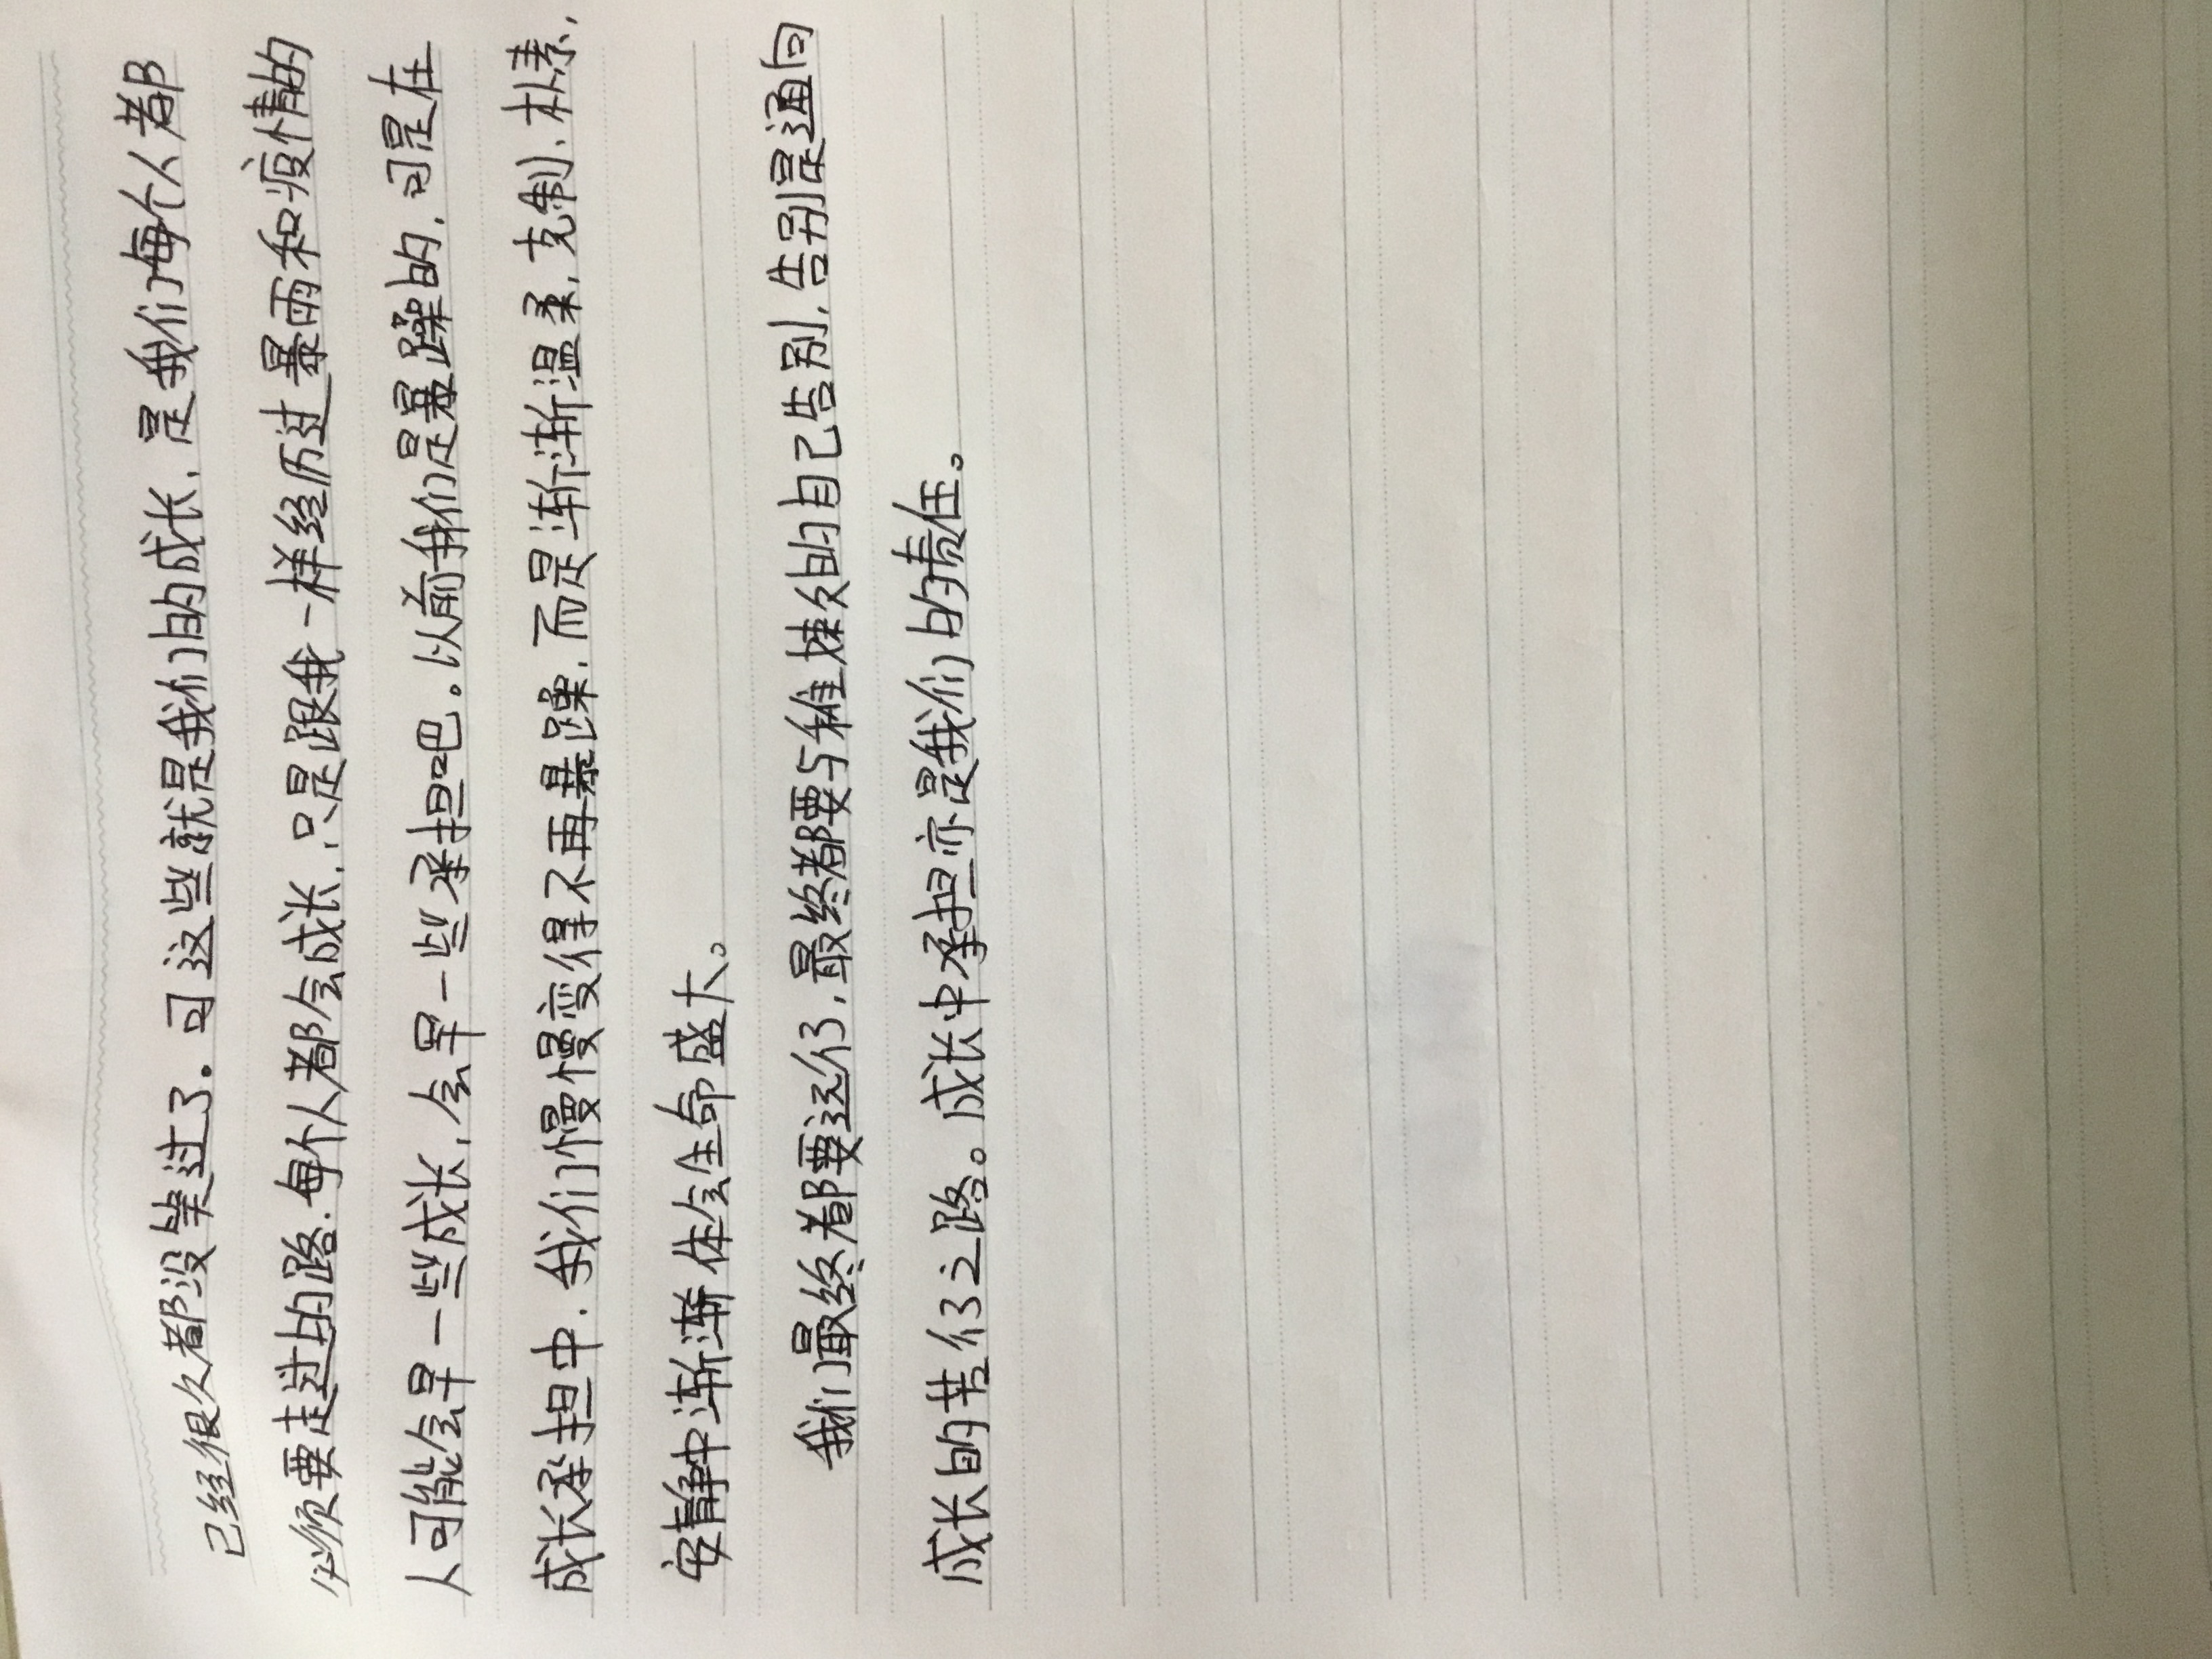 已经很久都没笑过了.可这些就是我们的成长,是我们每个人都
必须要走过的路.每个人都会成长,只是跟我一样经历过暴雨和疫情的
人可能会早一些成长,会早一些承担吧.以前我们是暴躁的,可是在
成长承担中,我们慢慢变得不再暴躁,而是渐渐温柔,克制、朴素,
安静中渐渐体会生命盛大。
我们最终都要远行,最终都要与稚嫩的自己告别,告别是通向
成长的苦行之路。成长中承担亦是我们的责任。